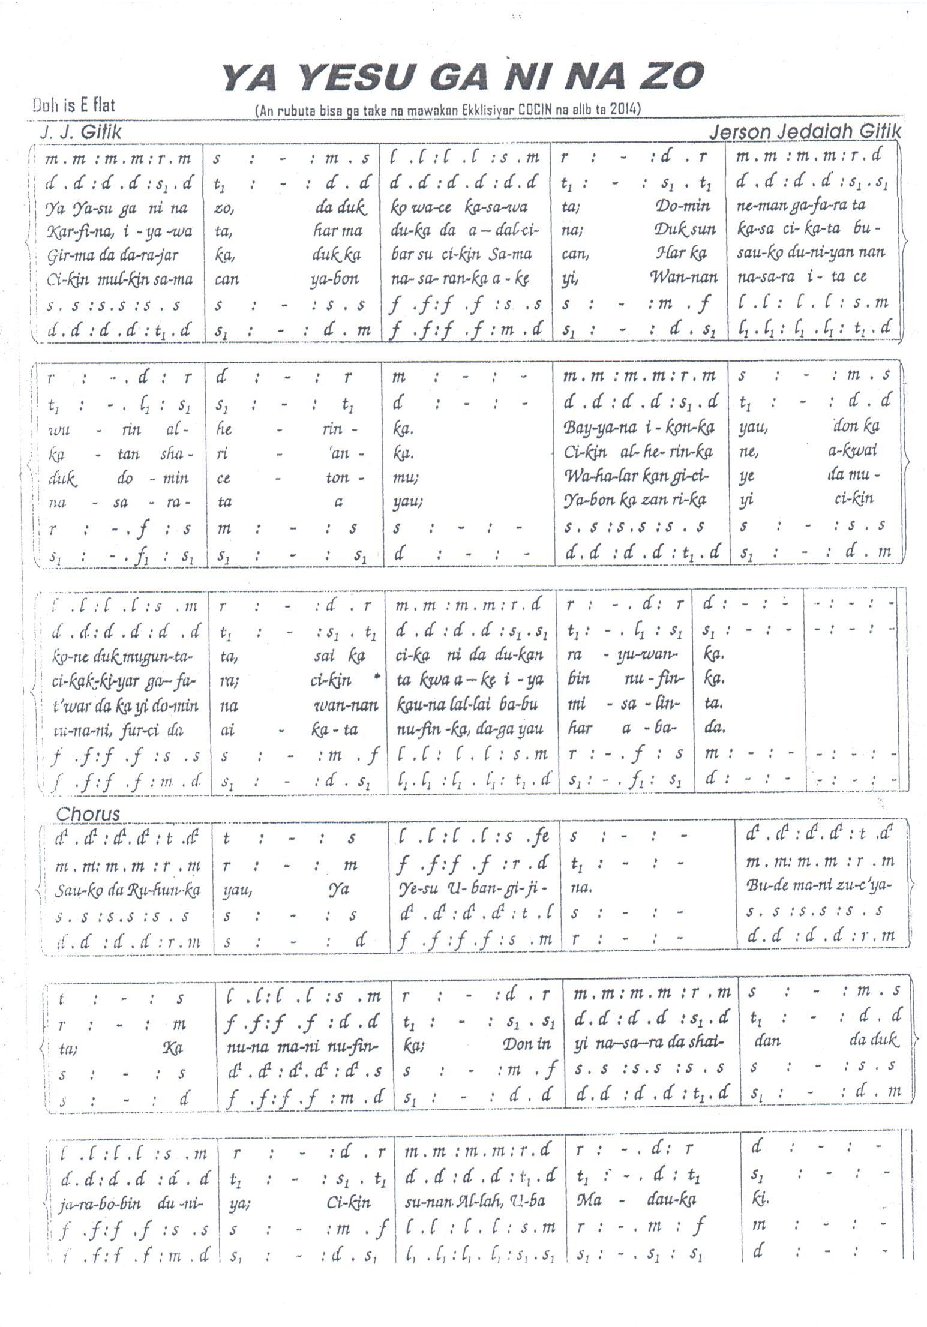 YA YESU GA NI NA ZO
Doh is E flat
(An rubuta bisa ga take na mawakan Ekklisiyar COCIN na alib ta 2014)
J. J. Gitik
Jerson Jedaiah Gitik
m . m : m . m : r . m s : - : m . s l . l : l . l : s . m r : - : d . r m . m : m . m : r . d
d . d : d . d : s₁ . d t₁ : - : d . d d . d : d . d : d . d t₁ : - : s₁ . t₁ d . d : d . d : s₁ . s₁
Ya Ya-su ga ni na zo, da duk ko wa-ce ka-sa-wa ta; Do-min ne-man ga-fa-ra ta
Kar-fi-na, i - ya -wa ta, har ma du-ka da a - dal-ci- na; Duk sun ka-sa ci-ka-ta bu -
Gir-ma da da-ra-jar ka, duk ka bar su ci-kin Sa-ma can, Har ka sau-ko du-ni-yan nan
Ci-kin mul-kin sa-ma can ya-bon na-sa-ran-ka a - ke yi, Wan-nan na-sa-ra i - ta ce
s . s : s . s : s . s s : - : s . s f . f : f . f : s . s s : - : m . f l . l : l . l : s . m
d . d : d . d : t₁ . d s₁ : - : d . m f . f : f . f : m . d s₁ : - : d . s₁ l₁ . l₁ : l₁ . l₁ : t₁ . d
r : - . d : r d : - : r m : - : - m . m : m . m : r . m s : - : m . s
t₁ : - . l₁ : s₁ s₁ : - : t₁ d : - : - d . d : d . d : s₁ . d t₁ : - : d . d
wu - rin al- he - rin - ka. Bay-ya-na i - kon-ka yau, don ka
ka - tan sha- ri - 'an - ka. Ci-kin al-he-rin-ka ne, a-kwai
duk do - min ce - ton - mu; Wa-ha-lar kan gi-ci- ye da mu -
na - sa - ra - ta a yau; Ya-bon ka zan ri-ka yi ci-kin
r : - . f : s m : - : s s : - : - s . s : s . s : s . s s : - : s . s
s₁ : - . f₁ : s₁ s₁ : - : s₁ d : - : - d . d : d . d : t₁ . d s₁ : - : d . m
l . l : l . l : s . m r : - : d . r m . m : m . m : r . d r : - . d : r d : - : - - : - : -
d . d : d . d : d . d t₁ : - : s₁ . t₁ d . d : d . d : s₁ . s₁ t₁ : - . l₁ : s₁ s₁ : - : - - : - : -
ko-ne duk mugun-ta- ta, sai ka ci-ka ni da du-kan ra - yu-wan- ka.
ci-kak-ki-yar ga-fa- ra; ci-kin ta kwa a - ke i - ya bin nu -fin- ka.
t'war da ka yi do-min na wan-nan kau-na lal-lai ba-bu mi - sa - lin- ta.
na-ni, fur-ci da ai - ka-ta nu-fin -ka, da-ga yau har a - ba- da.
f . f : f . f : s . s s : - : m . f l . l : l . l : s . m r : - . f : s m : - : - - : - : -
f . f : f . f : m . d s₁ : - : d . s₁ l₁ . l₁ : l₁ . l₁ : t₁ . d s₁ : - . f₁ : s₁ d : - : - - : - : -
Chorus
d¹ . d¹ : d¹ . d¹ : t . d¹ t : - : s l . l : l . l : s . fe s : - : - d¹ . d¹ : d¹ . d¹ : t . d¹
m . m : m . m : r . m r : - : m f . f : f . f : r . d t₁ : - : - m . m : m . m : r . m
Sau-ko da Ru-hun-ka yau, Ya Ye-su U-ban-gi-ji- na. Bu-de ma-ni zu-c'ya-
s . s : s . s : s . s s : - : s d¹ . d¹ : d¹ . d¹ : t . l s : - : - s . s : s . s : s . s
d . d : d . d : r . m s : - : d f . f : f . f : s . m r : - : - d . d : d . d : r . m
t : - : s l . l : l . l : s . m r : - : d . r m . m : m . m : r . m s : - : m . s
r : - : m f . f : f . f : d . d t₁ : - : s₁ . s₁ d . d : d . d : s₁ . d t₁ : - : d . d
ta; Ka nu-na ma-ni nu-fin- ka; Don in yi na-sa-ra da shai- dan da duk
s : - : s d¹ . d¹ : d¹ . d¹ : d¹ . s s : - : m . f s . s : s . s : s . s s : - : s . s
s : - : d f . f : f . f : m . d s₁ : - : d . d d . d : d . d : t₁ . d s₁ : - : d . m
l . l : l . l : s . m r : - : d . r m . m : m . m : r . d r : - . d : r d : - : -
d . d : d . d : d . d t₁ : - : s₁ . t₁ d . d : d . d : t₁ . d t₁ : - . d : t₁ s₁ : - : -
ja-ra-bo-bin du-ni- ya; Ci-kin su-nan Al-lah, U-ba Ma - dau-ka ki.
f . f : f . f : s . s s : - : m . f l . l : l . l : s . m r : - . m : f m : - : -
f . f : f . f : m . d s₁ : - : d . s₁ l₁ . l₁ : l₁ . l₁ : s₁ . s₁ s₁ : - . s₁ : s₁ d : - : -